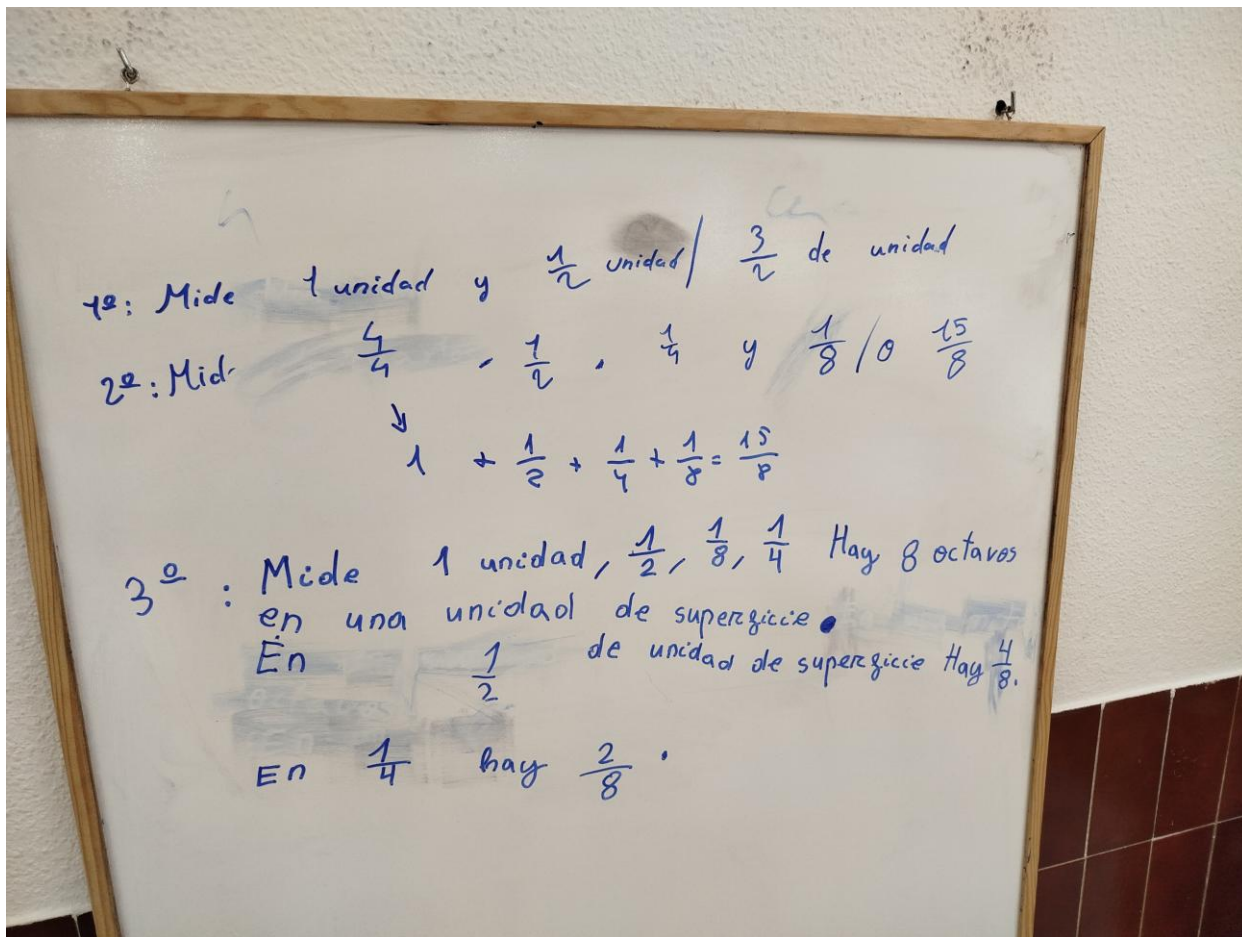 1º: Mide 1 unidad y 1/2 unidad / 3/2 de unidad
2º: Mid 4/4 . 1/2 . 1/4 y 1/8 / o 15/8
↓
1 + 1/2 + 1/4 + 1/8 = 15/8
3º: Mide 1 unidad, 1/2, 1/8, 1/4 Hay 8 octavos
en una unidad de superficie.
En 1/2 de unidad de superficie Hay 4/8.
En 1/4 hay 2/8.